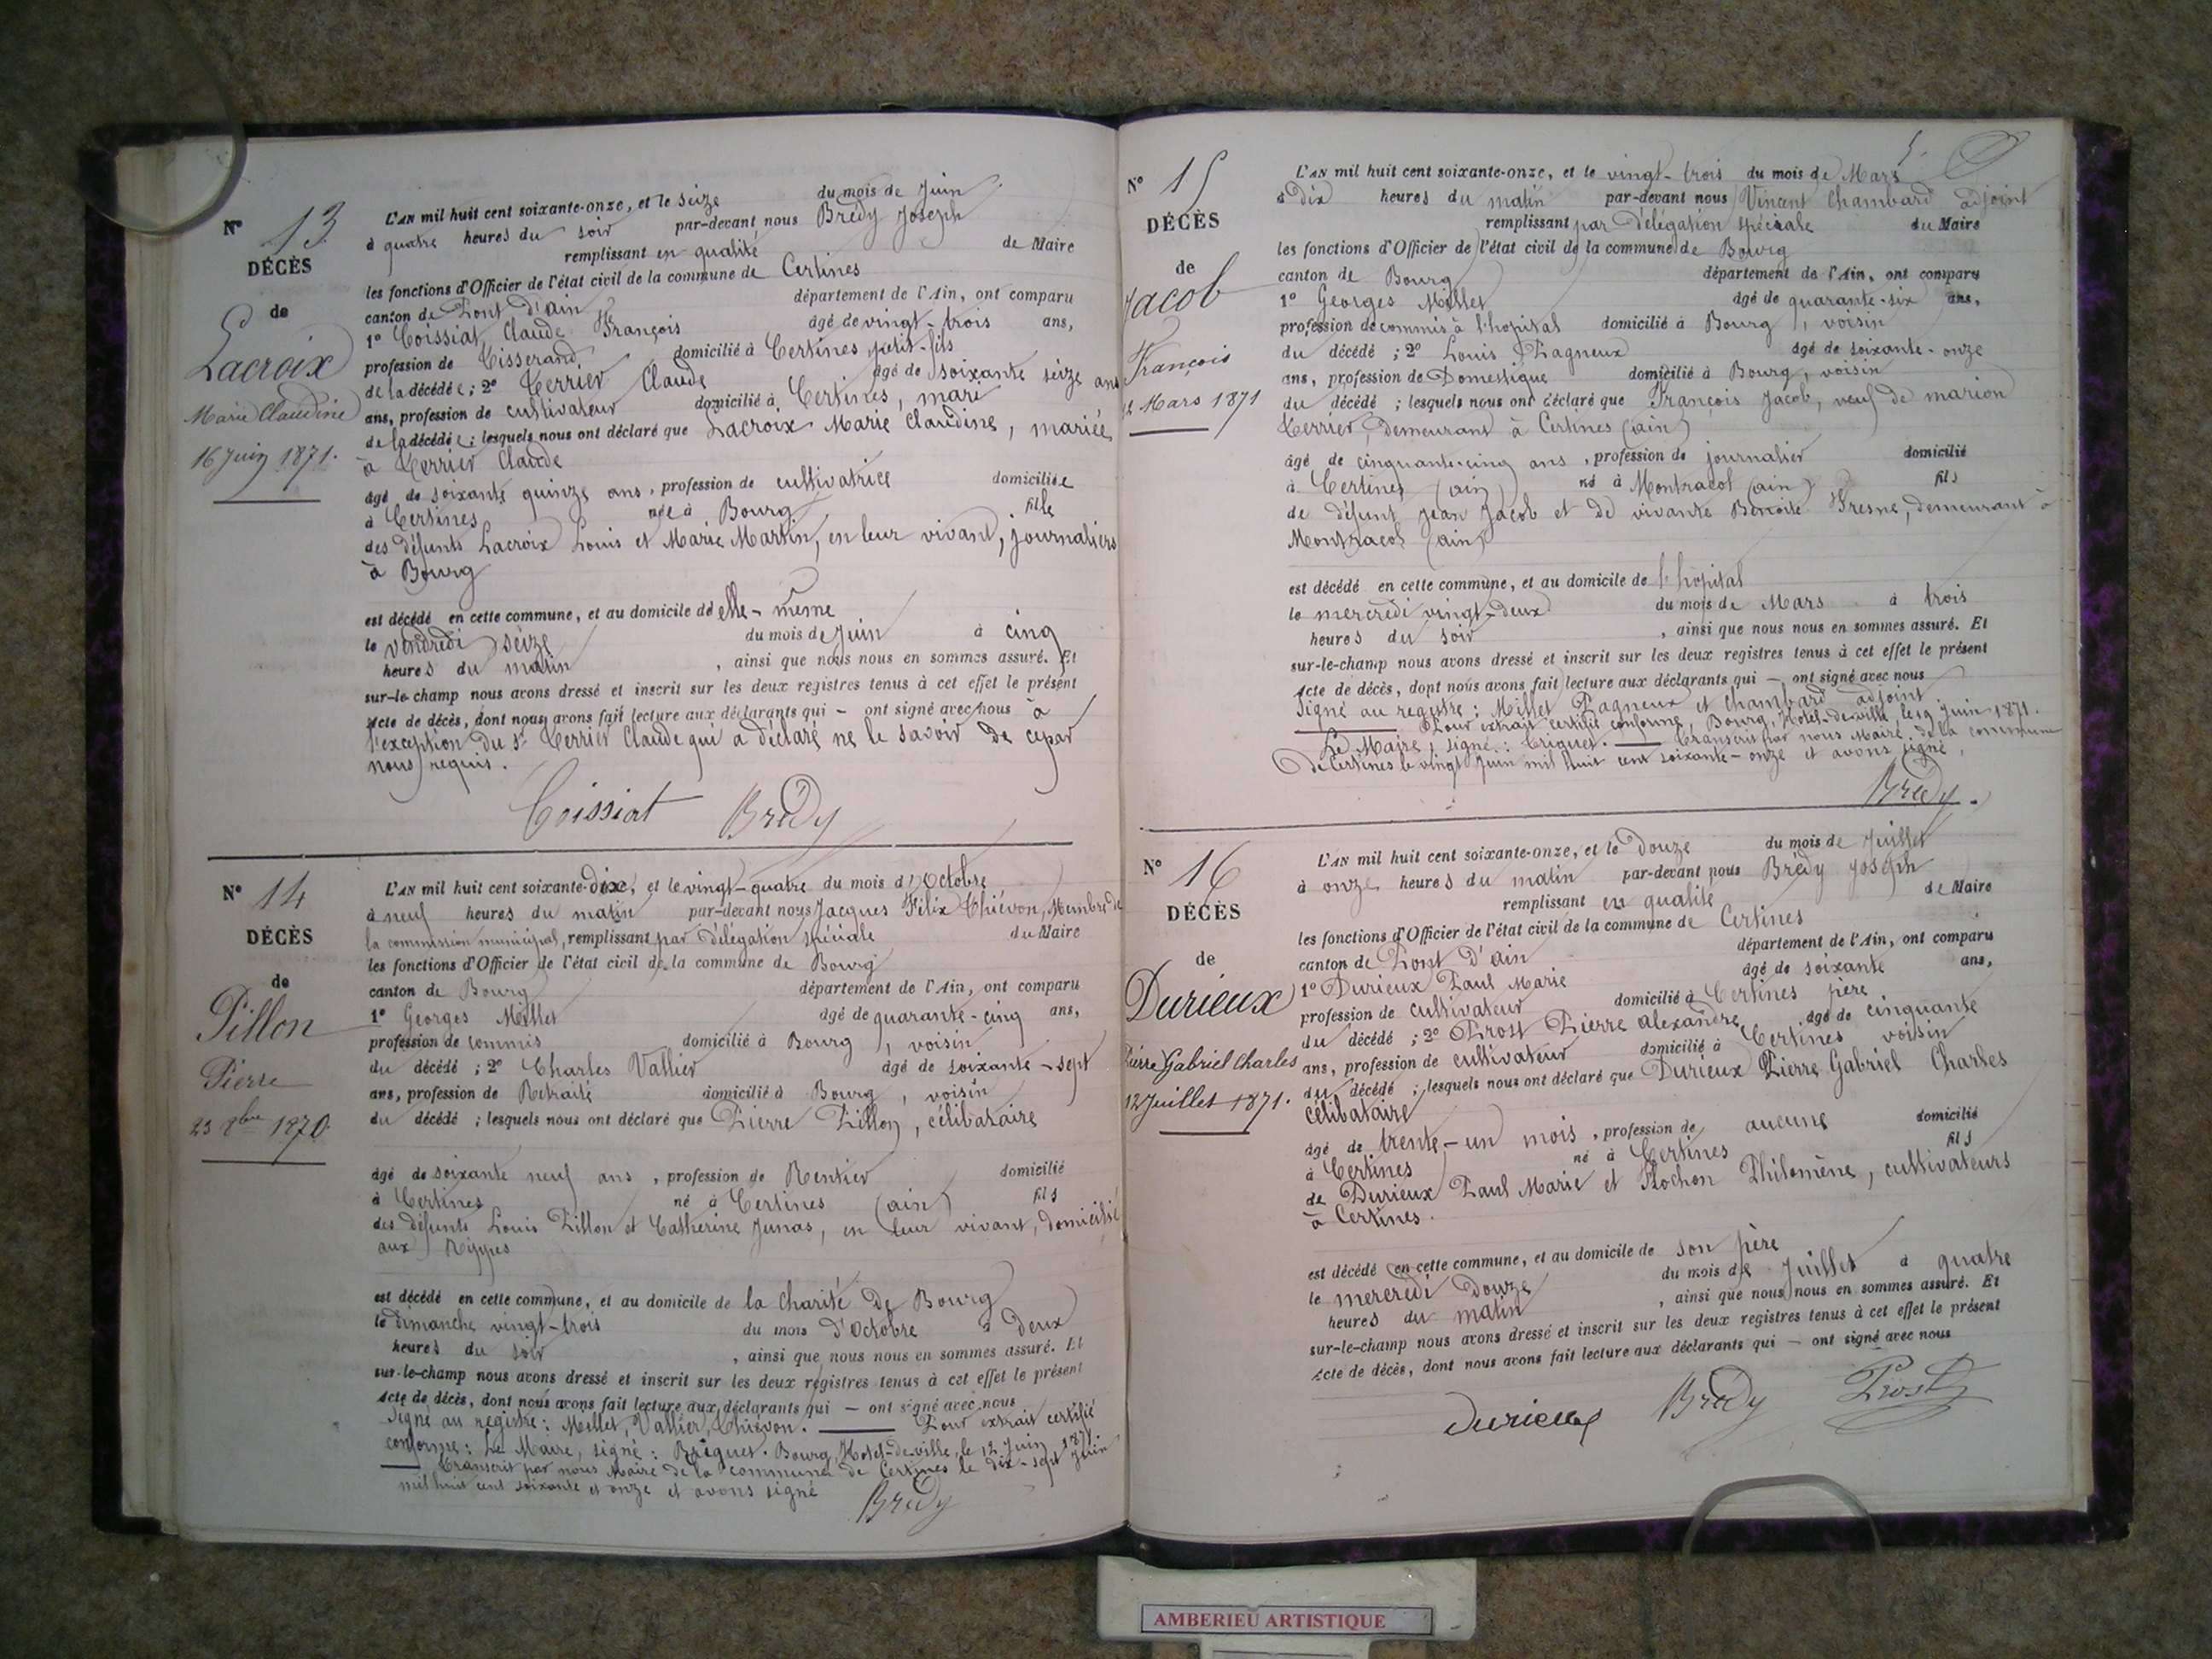 N° 13
DÉCÈS
de
Lacroix
Marie Claudine
16 Juin 1871.
L'AN mil huit cent soixante-onze, et le seize du mois de Juin
à quatre heures du soir par-devant nous Brédy Joseph
remplissant en qualité de Maire
les fonctions d'Officier de l'état civil de la commune de Certines
canton de Pont d'ain département de l'Ain, ont comparu
1° Coissiat Claude François âgé de vingt-trois ans,
profession de Tisserand domicilié à Certines, petit-fils
de la décédée ; 2° Terrier Claude âgé de soixante seize ans
ans, profession de cultivateur domicilié à Certines, mari
de la décédée ; lesquels nous ont déclaré que Lacroix Marie Claudine, mariée
à Terrier Claude
âgé de soixante quinze ans, profession de cultivatrice domiciliée
à Certines née à Bourg fille
des défunts Lacroix Louis et Marie Martin, en leur vivant, journaliers
à Bourg
est décédé en cette commune, et au domicile de elle-même
le vendredi seize du mois de Juin à cinq
heures du matin, ainsi que nous nous en sommes assuré. Et
sur-le-champ nous avons dressé et inscrit sur les deux registres tenus à cet effet le présent
Acte de décès, dont nous avons fait lecture aux déclarants qui — ont signé avec nous à
l'exception du Sr Terrier Claude qui a déclaré ne le savoir de ce par
nous requis.
Coissiat Brédy
N° 14
DÉCÈS
de
Pillon
Pierre
23 8bre 1870
L'AN mil huit cent soixante-dix, et le vingt-quatre du mois d'Octobre
à neuf heures du matin par-devant nous Jacques Félix Chiévon, Membre de
la commission municipal, remplissant par délégation spéciale du Maire
les fonctions d'Officier de l'état civil de la commune de Bourg
canton de Bourg département de l'Ain, ont comparu
1° Georges Millet âgé de quarante-cinq ans,
profession de commis domicilié à Bourg, voisin
du décédé ; 2° Charles Vallier âgé de soixante-sept
ans, profession de Retraité domicilié à Bourg, voisin
du décédé ; lesquels nous ont déclaré que Pierre Pillon, célibataire
âgé de soixante neuf ans, profession de Rentier domicilié
à Certines né à Certines (ain) fils
des défunts Louis Pillon et Catherine Junas, en leur vivant, domicilié
aux Rippes
est décédé en cette commune, et au domicile de la Charité de Bourg
le dimanche vingt-trois du mois d'Octobre à Deux
heures du soir, ainsi que nous nous en sommes assuré. Et
sur-le-champ nous avons dressé et inscrit sur les deux registres tenus à cet effet le présent
Acte de décès, dont nous avons fait lecture aux déclarants qui — ont signé avec nous
Signé au registre : Millet, Vallier, Chiévon. — Pour extrait certifié
conforme : Le Maire, signé : Briquet. Bourg, Hotel-de-ville, le 12 Juin 1871.
— Transcrit par nous Maire de la commune de Certines le dix-sept Juin
mil huit cent soixante et onze et avons signé
Brédy
5.
N° 15
DÉCÈS
de
Jacob
Francois
22 Mars 1871
L'AN mil huit cent soixante-onze, et le vingt-trois du mois de Mars
à dix heures du matin par-devant nous Vincent Chambard adjoint
remplissant par délégation spéciale du Maire
les fonctions d'Officier de l'état civil de la commune de Bourg
canton de Bourg département de l'Ain, ont comparu
1° Georges Millet âgé de quarante-six ans,
profession de commis à l'hopital domicilié à Bourg, voisin
du décédé ; 2° Louis Pagneux âgé de soixante-onze
ans, profession de Domestique domicilié à Bourg, voisin
du décédé ; lesquels nous ont déclaré que François Jacob, veuf de marion
Terrier, demeurant à Certines (ain)
âgé de cinquante-cinq ans, profession de journalier domicilié
à Certines (ain) né à Montracol (ain) fils
de défunt Jean Jacob et de vivante Benoite Fresne, demeurant à
Montracol (ain)
est décédé en cette commune, et au domicile de l'hopital
le mercredi vingt-deux du mois de Mars à trois
heures du soir, ainsi que nous nous en sommes assuré. Et
sur-le-champ nous avons dressé et inscrit sur les deux registres tenus à cet effet le présent
Acte de décès, dont nous avons fait lecture aux déclarants qui — ont signé avec nous
Signé au registre : Millet Pagneux et chambard adjoint
— Pour extrait certifié conforme, Bourg, Hotel-de-ville, le 9 Juin 1871.
Le Maire, signé : Briquet. — Transcrit par nous Maire de la commune
de Certines le vingt Juin mil huit cent soixante-onze et avons signé,
Brédy.
N° 16
DÉCÈS
de
Durieux
Pierre Gabriel Charles
12 Juillet 1871.
L'AN mil huit cent soixante-onze, et le Douze du mois de Juillet
à onze heures du matin par-devant nous Brédy Joseph
remplissant en qualité de Maire
les fonctions d'Officier de l'état civil de la commune de Certines
canton de Pont d'ain département de l'Ain, ont comparu
1° Durieux Paul Marie âgé de soixante ans,
profession de cultivateur domicilié à Certines père
du décédé ; 2° Prost Pierre alexandre âgé de cinquante
ans, profession de cultivateur domicilié à Certines voisin
du décédé ; lesquels nous ont déclaré que Durieux Pierre Gabriel Charles
célibataire
âgé de trente-un mois, profession de aucune domicilié
à Certines né à Certines fils
de Durieux Paul Marie et Rochon Philomène, cultivateurs
à Certines.
est décédé en cette commune, et au domicile de son père
le mercredi Douze du mois de Juillet à quatre
heures du matin, ainsi que nous nous en sommes assuré. Et
sur-le-champ nous avons dressé et inscrit sur les deux registres tenus à cet effet le présent
Acte de décès, dont nous avons fait lecture aux déclarants qui — ont signé avec nous
Durieux Brédy Prost
AMBERIEU ARTISTIQUE